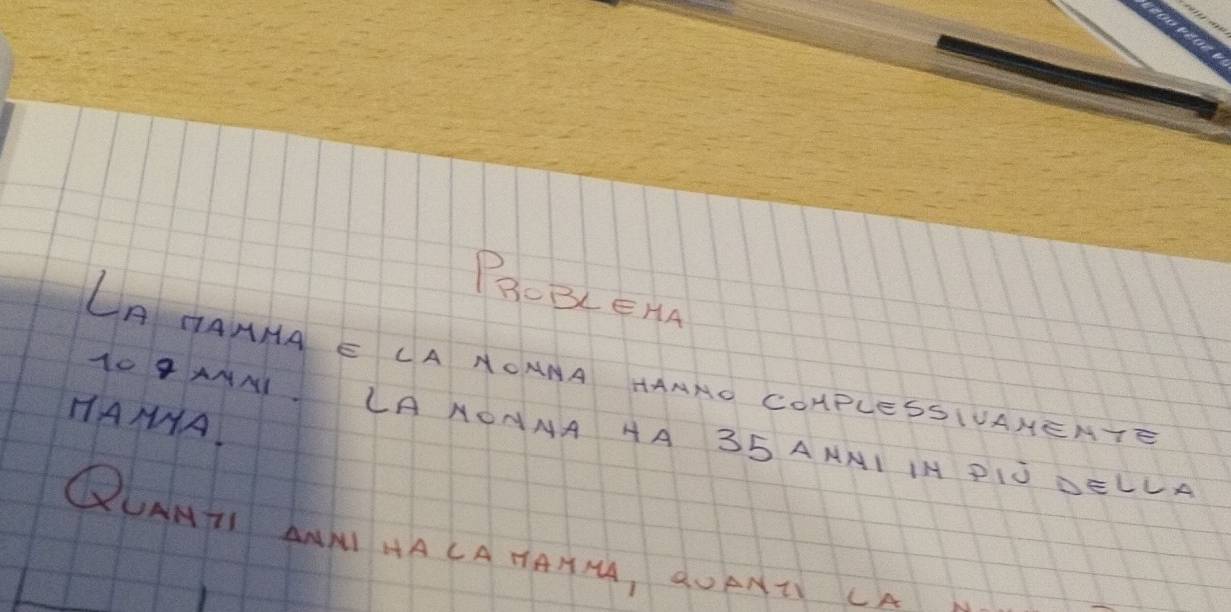 PROBLEMA
LA MAMMA E LA NONNA HANNO COMPLESSIVAMENTE
109 ANNI. LA NONNA HA 35 ANNI IN PIÙ DELLA
MAMMA.
QUANTI ANNI HA LA MAMMA, QUANTI LA